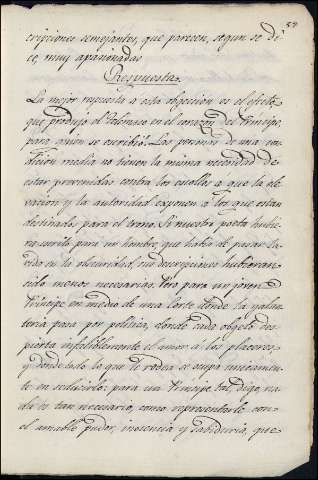 59
cripciones semejantes, que parecen, segun se di-
ce, muy apasionadas
Respuesta.
La mejor respuesta a esta objecion es el efecto
que produjo el Telemaco en el corazon del Principe,
para quien se escribió. Las personas de una con-
dicion media no tienen la misma necesidad de
estar prevenidas contra los escollos a que la ele-
vacion y la autoridad exponen a los que estan
destinados para el trono. Si nuestro poeta hubie-
ra escrito para un hombre, que habia de pasar la
vida en la obscuridad, sus descripciones hubieran
sido menos necesarias. Pero para un joven
Principe en medio de una Corte donde la galan-
teria pasa por politica, donde cada objeto des-
pierta infaliblemente el amor a los placeres,
y donde todo lo que le rodea se ocupa unicamen-
te en seducirlo: para un Principe tal, digo, na-
da es tan necesario, como representarle con
el amable pudor, inocencia y sabiduria, que